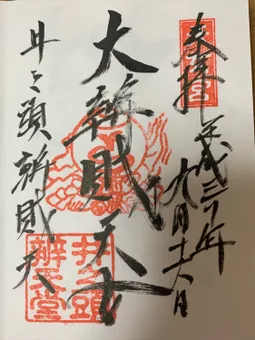 奉拝
平成三十年
九月十六日
大辨財天
井之頭辨財天
井之頭
辨天堂